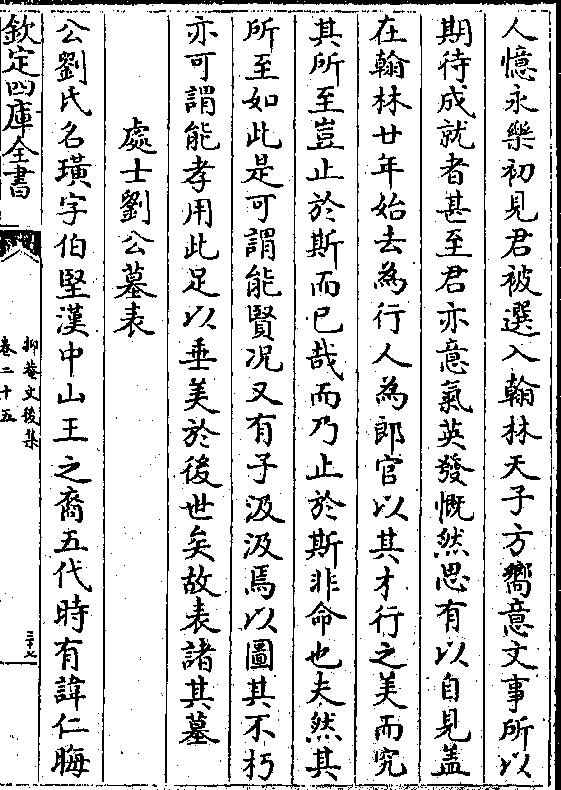 人憶永樂初見君被選入翰林天子方嚮意文事所以
期待成就者甚至君亦意氣英發慨然思有以自見盖
在翰林廿年始去為行人為郎官以其才行之美而究
其所至豈止於斯而已哉而乃止於斯非命也夫然其
所至如此是可謂能賢况又有子汲汲焉以圖其不朽
亦可謂能孝用此足以垂美於後世矣故表諸其墓
處士劉公墓表
公劉氏名璜字伯堅漢中山王之裔五代時有諱仁晦
欽定四庫全書
抑菴文後集
卷二十五